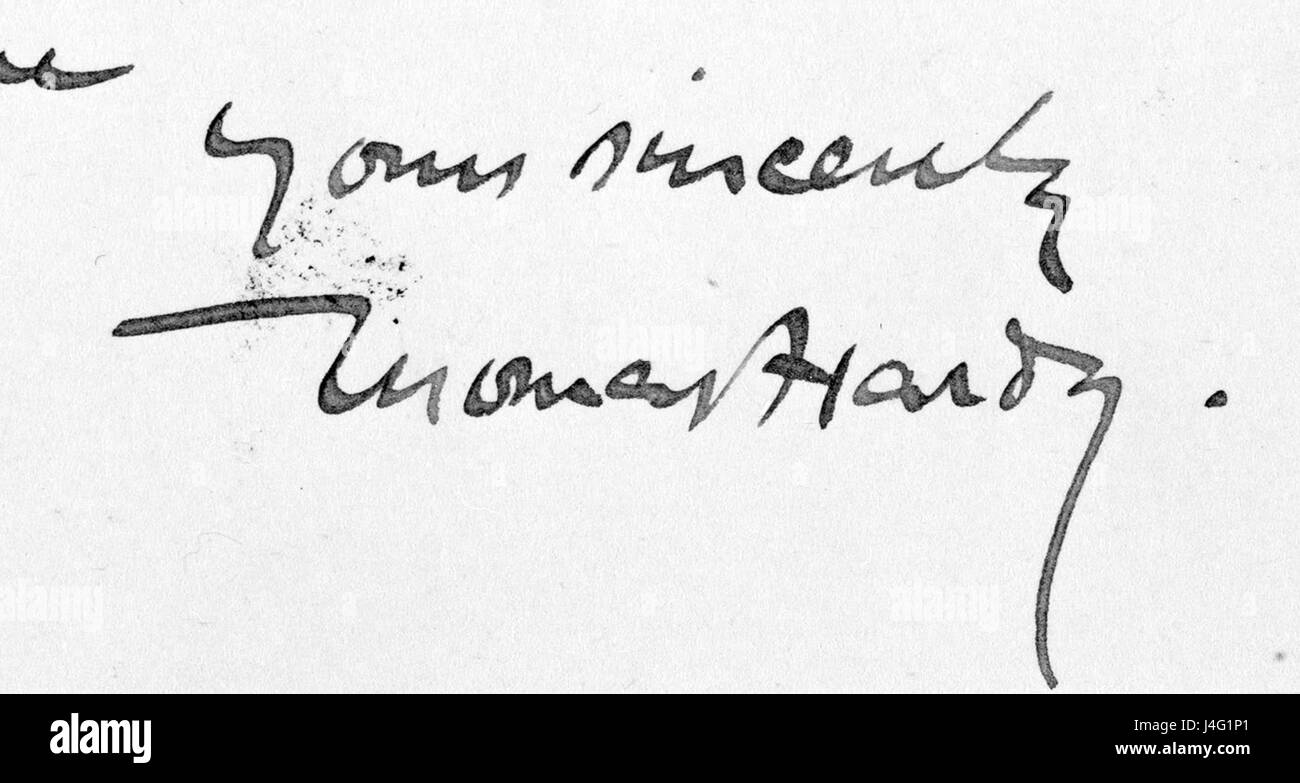 yours sincerely
Thomas Hardy.
alamy
Image ID: J4G1P1
www.alamy.com